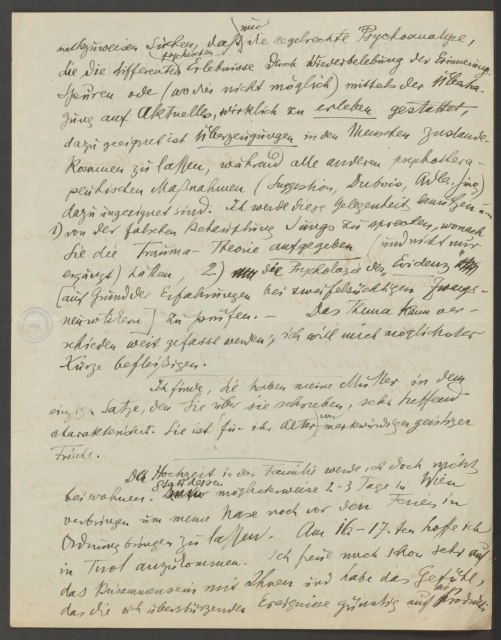 nachzuweisen suchen, daß nur die regelrechte Psychoanalyse,
die die differenten psychischen Erlebnisse durch Wiederbelebung der Erinnerungs
spuren oder (wo dies nicht möglich) mittels der Übertra-
gung auf Aktuelles, wirklich zu erleben gestattet,
dazu geeignet ist Überzeugungen in den Menschen zustande-
kommen zu lassen, während alle anderen psychothera-
peutischen Maßnahmen (Suggestion, Dubois, Adler, Jung)
dazu ungeeignet sind. Ich werde diese Gelegenheit benützen
1) von der falschen Behauptung Jungs zu sprechen, wonach
Sie die Trauma-Theorie aufgegeben (und nicht nur
ergänzt) hätten, 2.) die Psychologie der Evidenz
[auf Grund der Erfahrungen bei zweifelsüchtigen Zwangs-
neurotikern] zu prüfen. — Das Thema kann ver-
schieden weit gefasst werden; ich will mich möglichster
Kürze befleißigen.
Ich finde, Sie haben meine Mutter in dem
einzigen Satze, den Sie über sie schreiben, sehr treffend
charakterisiert. Sie ist für ihr Alter von merkwürdiger geistiger
Frische.
Der Hochzeit in der Familie werde ich doch nicht
beiwohnen. Statt dessen möglicherweise 2-3 Tage in Wien
verbringen um meine Nase noch vor den Ferien in
Ordnung bringen zu lassen. Am 16-17.ten hoffe ich
in Tirol anzukommen. Ich freue mich schon sehr auf
das Zusammensein mit Ihnen und habe das Gefühl,
das die sich überstürzenden Ereignisse günstig auf